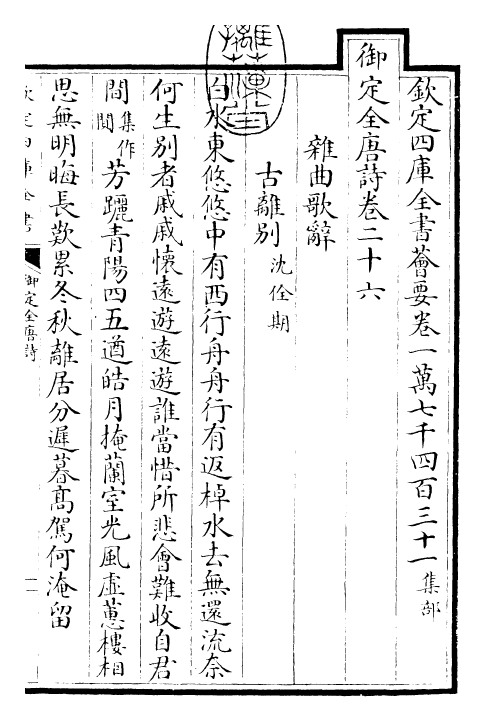 欽定四庫全書薈要卷一萬七千四百三十一集部
御定全唐詩卷二十六
雜曲歌辭
古離別沈佺期
白水東悠悠中有西行舟舟行有返棹水去無還流奈
何生別者戚戚懷遠遊遠遊誰當惜所悲會難收自君
間集作閒芳躧青陽四五遒皓月掩蘭室光風虛蕙樓相
思無明晦長歎累冬秋離居分遲暮高駕何淹留
欽定四庫全書
御定全唐詩
一